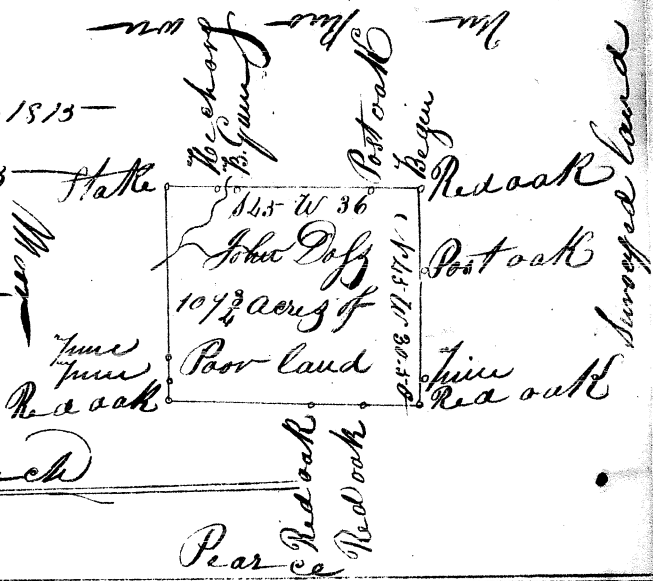 1813
Stake
Hickory
B. Gum
Post oak
Begin
Red oak
S45 W 36
John Doss
107 3/4 Acres of
Poor land
N45 W 30-50
Post oak
Surveyed land
Pine
Pine
Red oak
Pine
Red oak
Red oak
Red oak
Pearce